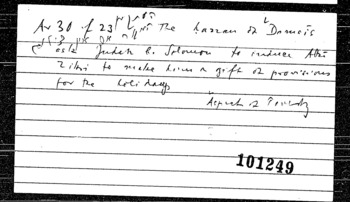 Ar 30 f 23 The hazzan of Damsis
asks Judah b. Solomon to induce Abu
Zikri to make him a gift of provisions
for the holidays
Aspects of Poverty
101249